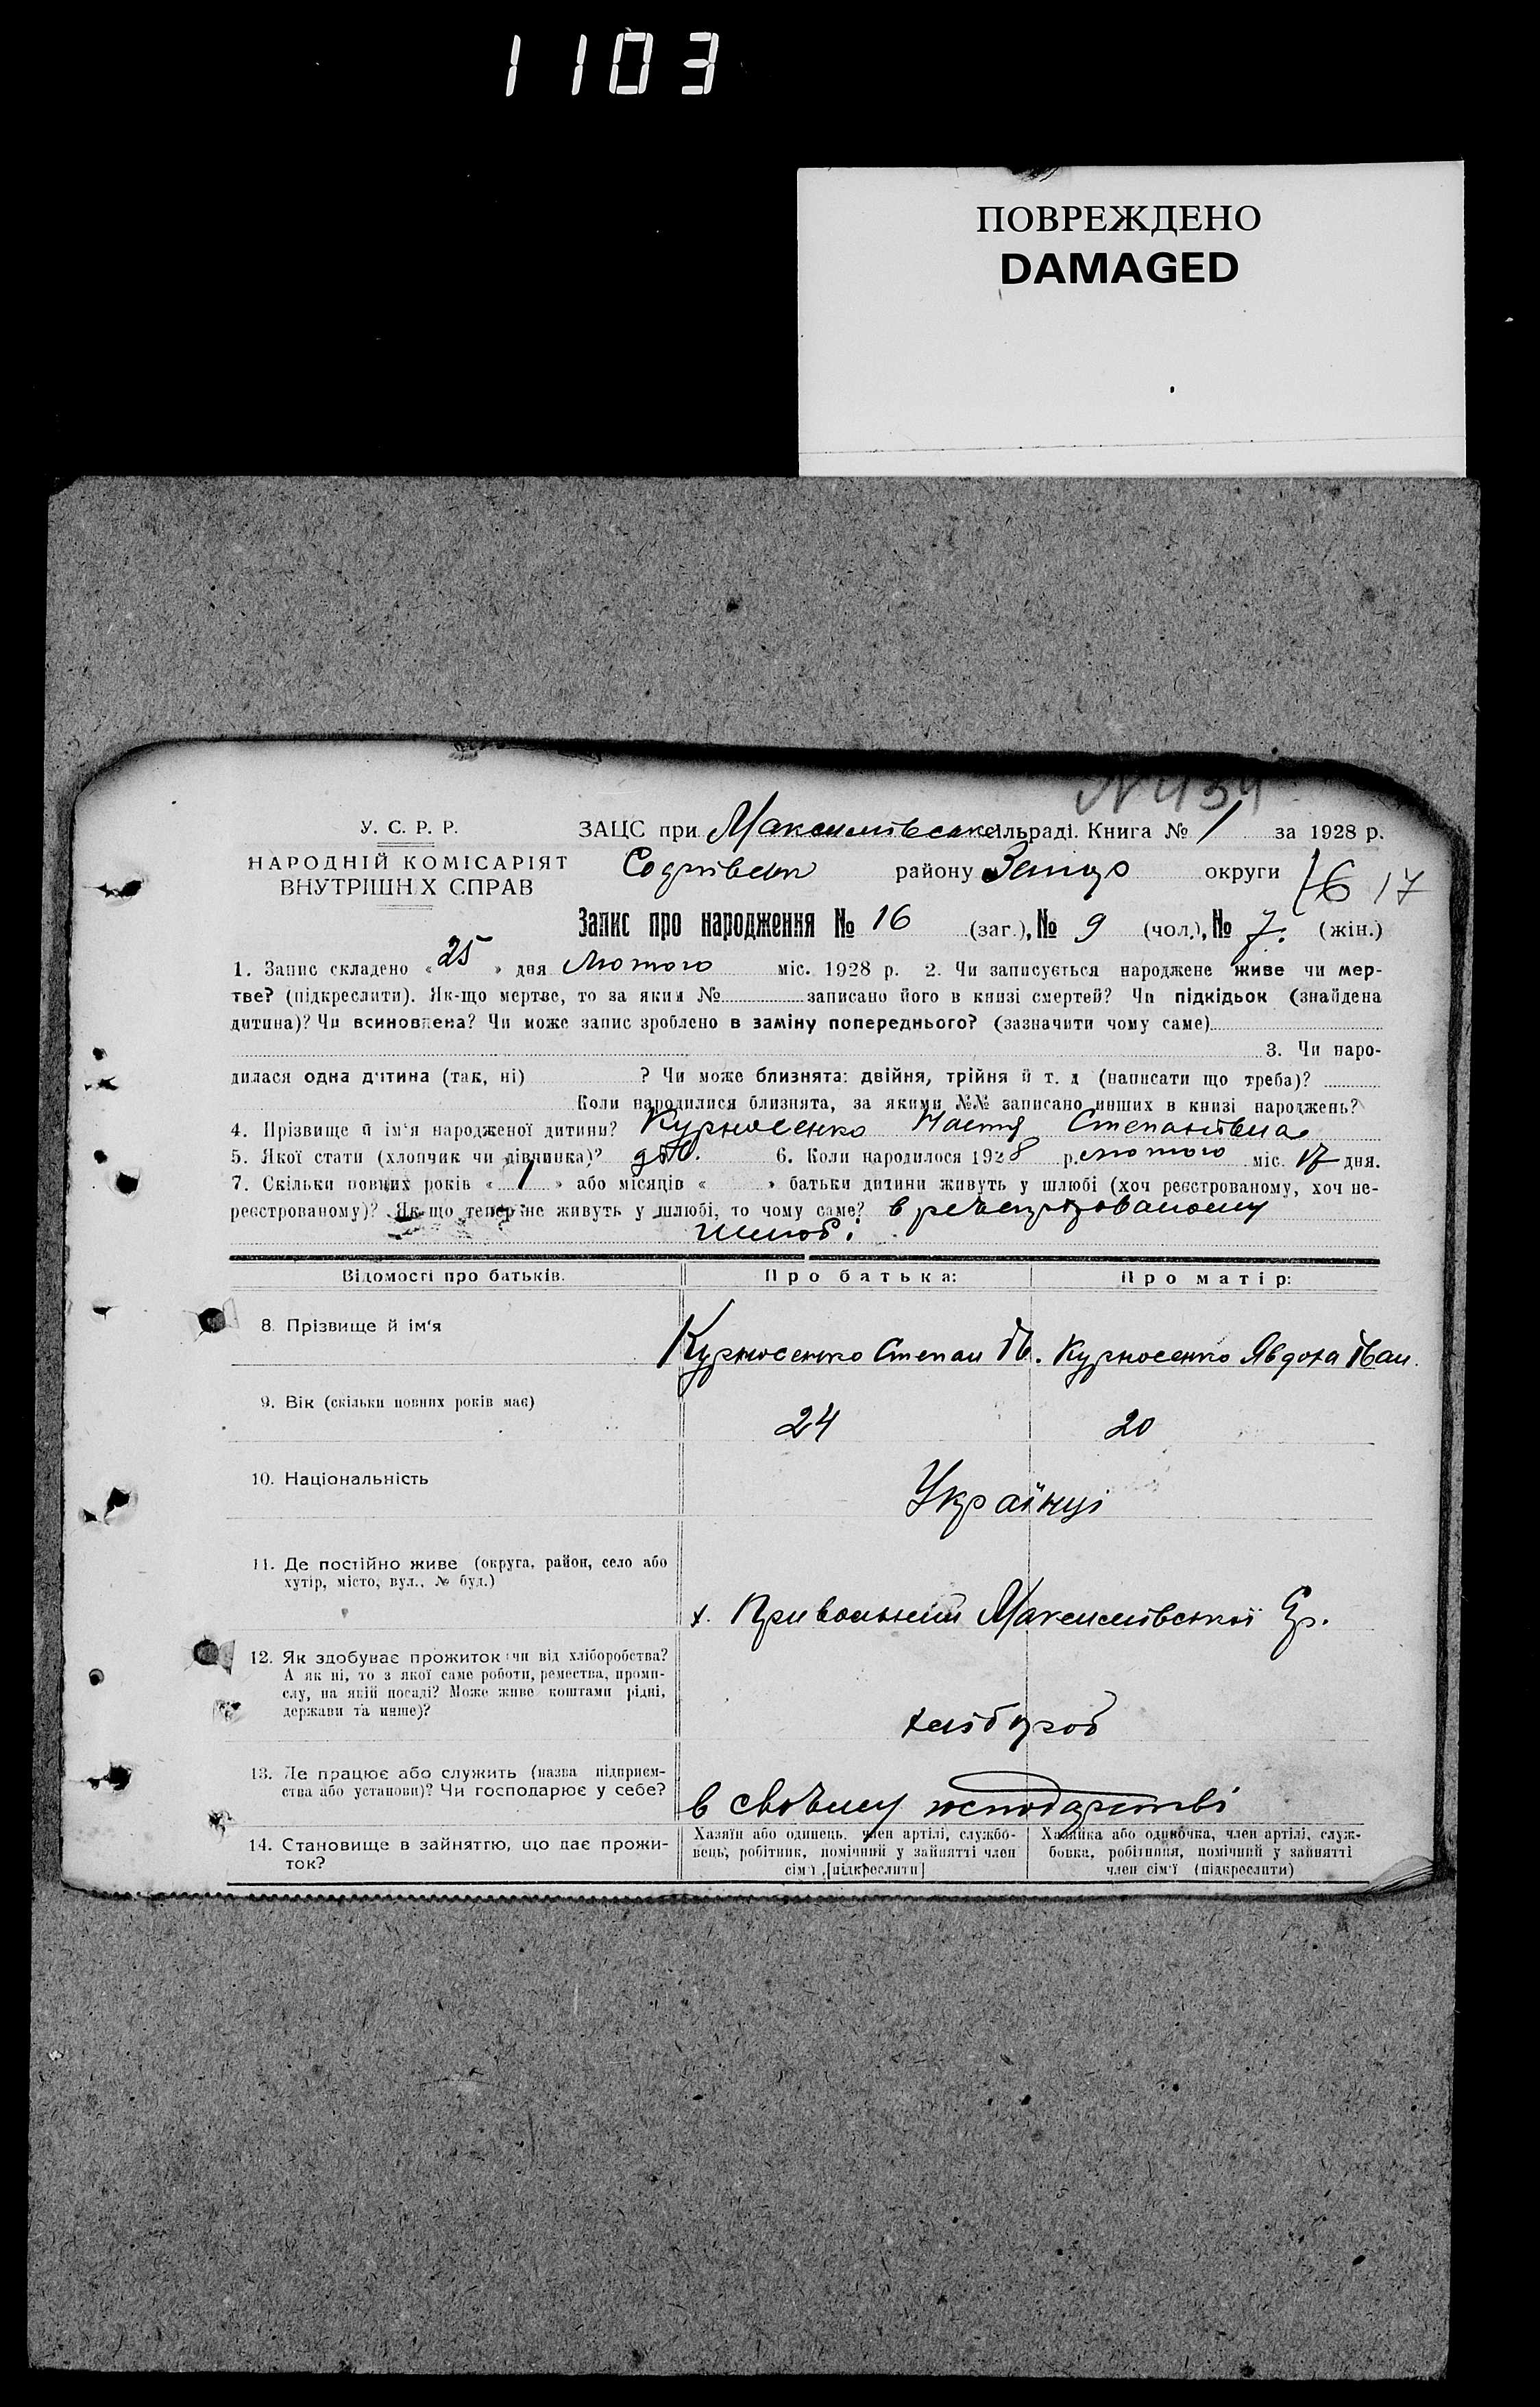 1103
ПОВРЕЖДЕНО
DAMAGED
N 434
У. С. Р. Р.
НАРОДНІЙ КОМІСАРІЯТ
ВНУТРІШН Х СПРАВ
ЗАЦС при Максимівське сільраді. Книга № 1 за 1928 р.
району округи 16 17
Запис про народження № 16 (заг.), № 9 (чол.), № 7. (жін.)
1. Запис складено « 25 » дня Лютого міс. 1928 р. 2. Чи записується народжене живе чи мер-
тве? (підкреслити). Як-що мертве, то за яким № записано його в книзі смертей? Чи підкідьок (знайдена
дитина)? Чи всиновлена? Чи може запис зроблено в заміну попереднього? (зазначити чому саме)
3. Чи наро-
дилася одна дитина (так, ні) ? Чи може близнята: двійня, трійня й т. д (написати що треба)?
Коли народилися близнята, за якими №№ записано инших в книзі народжень?
4. Прізвище й ім'я народженої дитини? Курносенко Настя Степанівна
5. Якої стати (хлопчик чи дівчинка)? дів. 6. Коли народилося 1928 р. лютого міс. 17 дня.
7. Скільки повних років « 1 » або місяців « » батьки дитини живуть у шлюбі (хоч реєстрованому, хоч не-
реєстрованому)? Як-що тепер не живуть у шлюбі, то чому саме? в
шлюбі.
Відомості про батьків. Про батька: Про матір:
8. Прізвище й ім'я Курносенко Степан Ів. Курносенко Явдоха Іван.
9. Вік (скільки повних років має) 24 20
10. Національність Українці
11. Де постійно живе (округа, район, село або
хутір, місто, вул., № буд.)
х. Привольний Максимівської Ср.
12. Як здобуває прожиток: чи від хліборобства?
А як ні, то з якої саме роботи, ремества, проми-
слу, на якій посаді? Може живе коштами рідні,
держави та инше)?
хлібороб
13. Де працює або служить (назва підприєм-
ства або установи)? Чи господарює у себе?
в своєму господарстві
14. Становище в зайняттю, що дає прожи-
ток?
Хазяїн або одинець, член артілі, службо-
вець, робітник, помічний у зайнятті член
сім'ї [підкреслити]
Хазяйка або одиночка, член артілі, служ-
бовка, робітниця, помічний у зайнятті
член сім'ї (підкреслити)